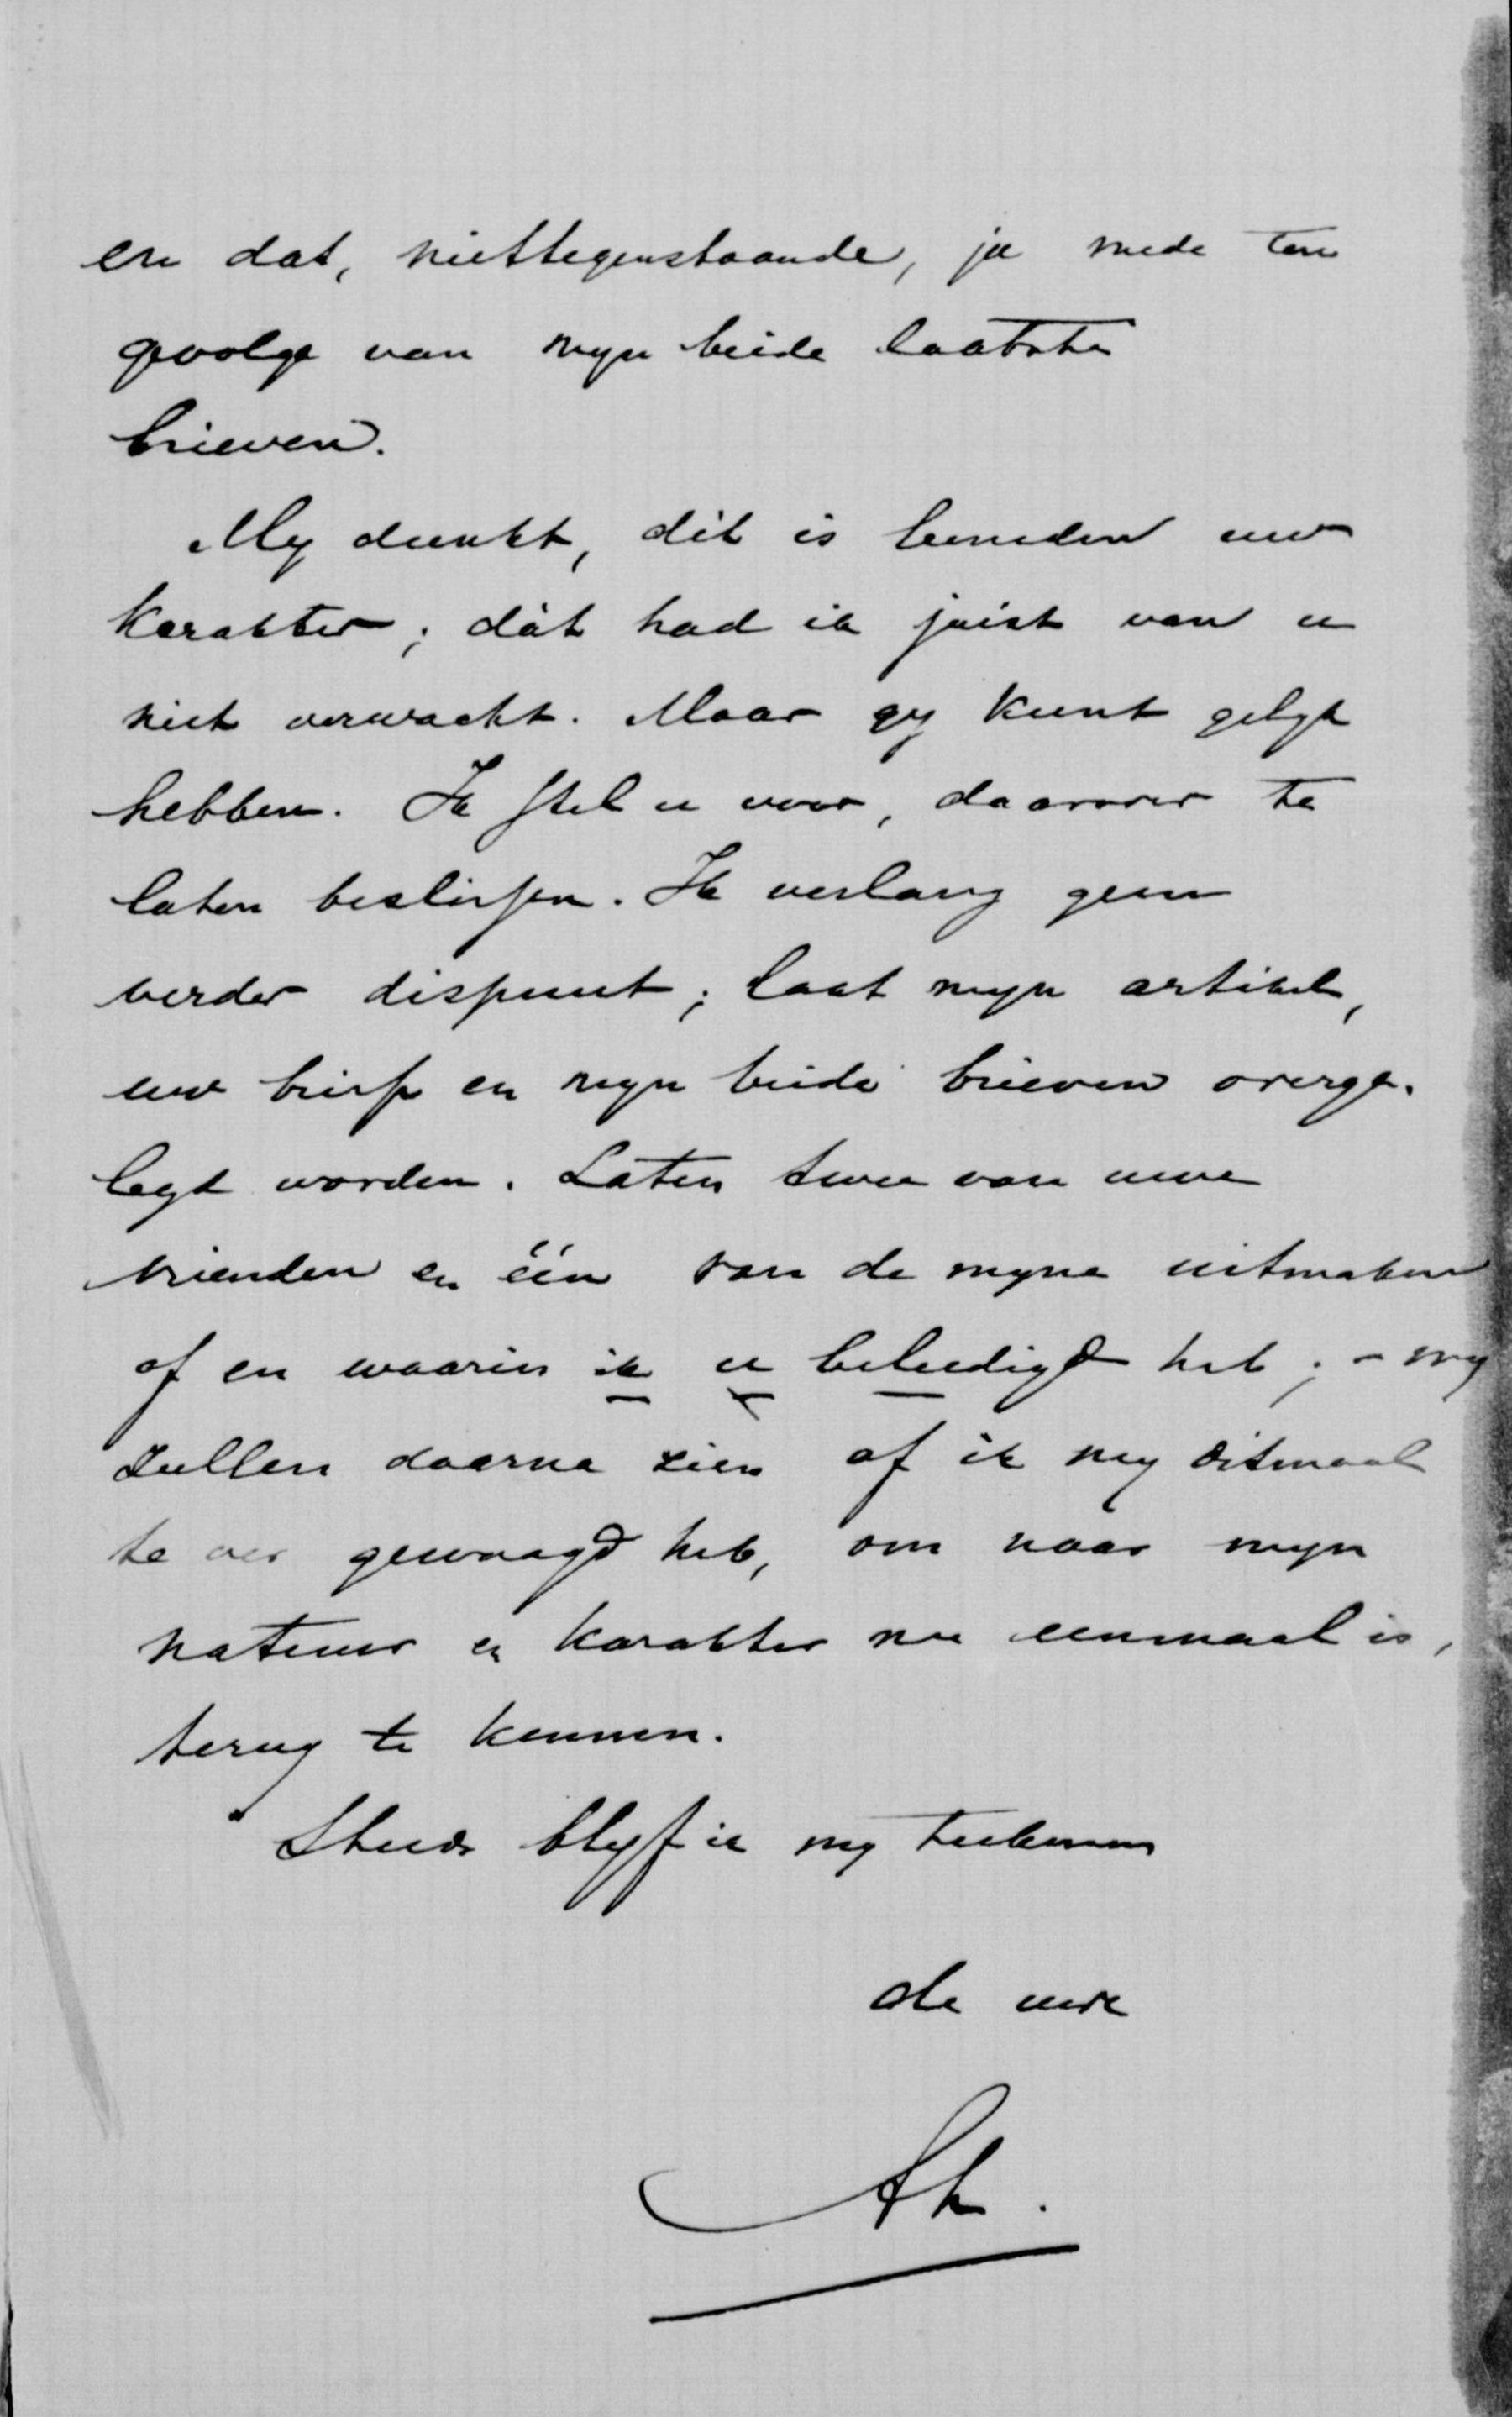 en dat, niettegenstaande, ja mede ten
gevolge van myn beide laatste
brieven.
My dunkt, dit is beneden uw
karakter; dàt had ik juist van u
niet verwacht. Maar gy kunt gelyk
hebben. Ik stel u voor, daarover te
laten beslissen. Ik verlang geen
verder dispuut; laat myn artikel,
uw brief en myn beide brieven overge-
legd worden. Laten twee van uwe
vrienden en één van de myne uitmaken
of en waarin ik u beleedigd heb; - wy
zullen daarna zien of ik my ditmaal
te ver gewaagd heb, om naar myn
natuur en karakter nu eenmaal is,
terug te kunnen.
Steeds blyf ik my teekenen
de uwe